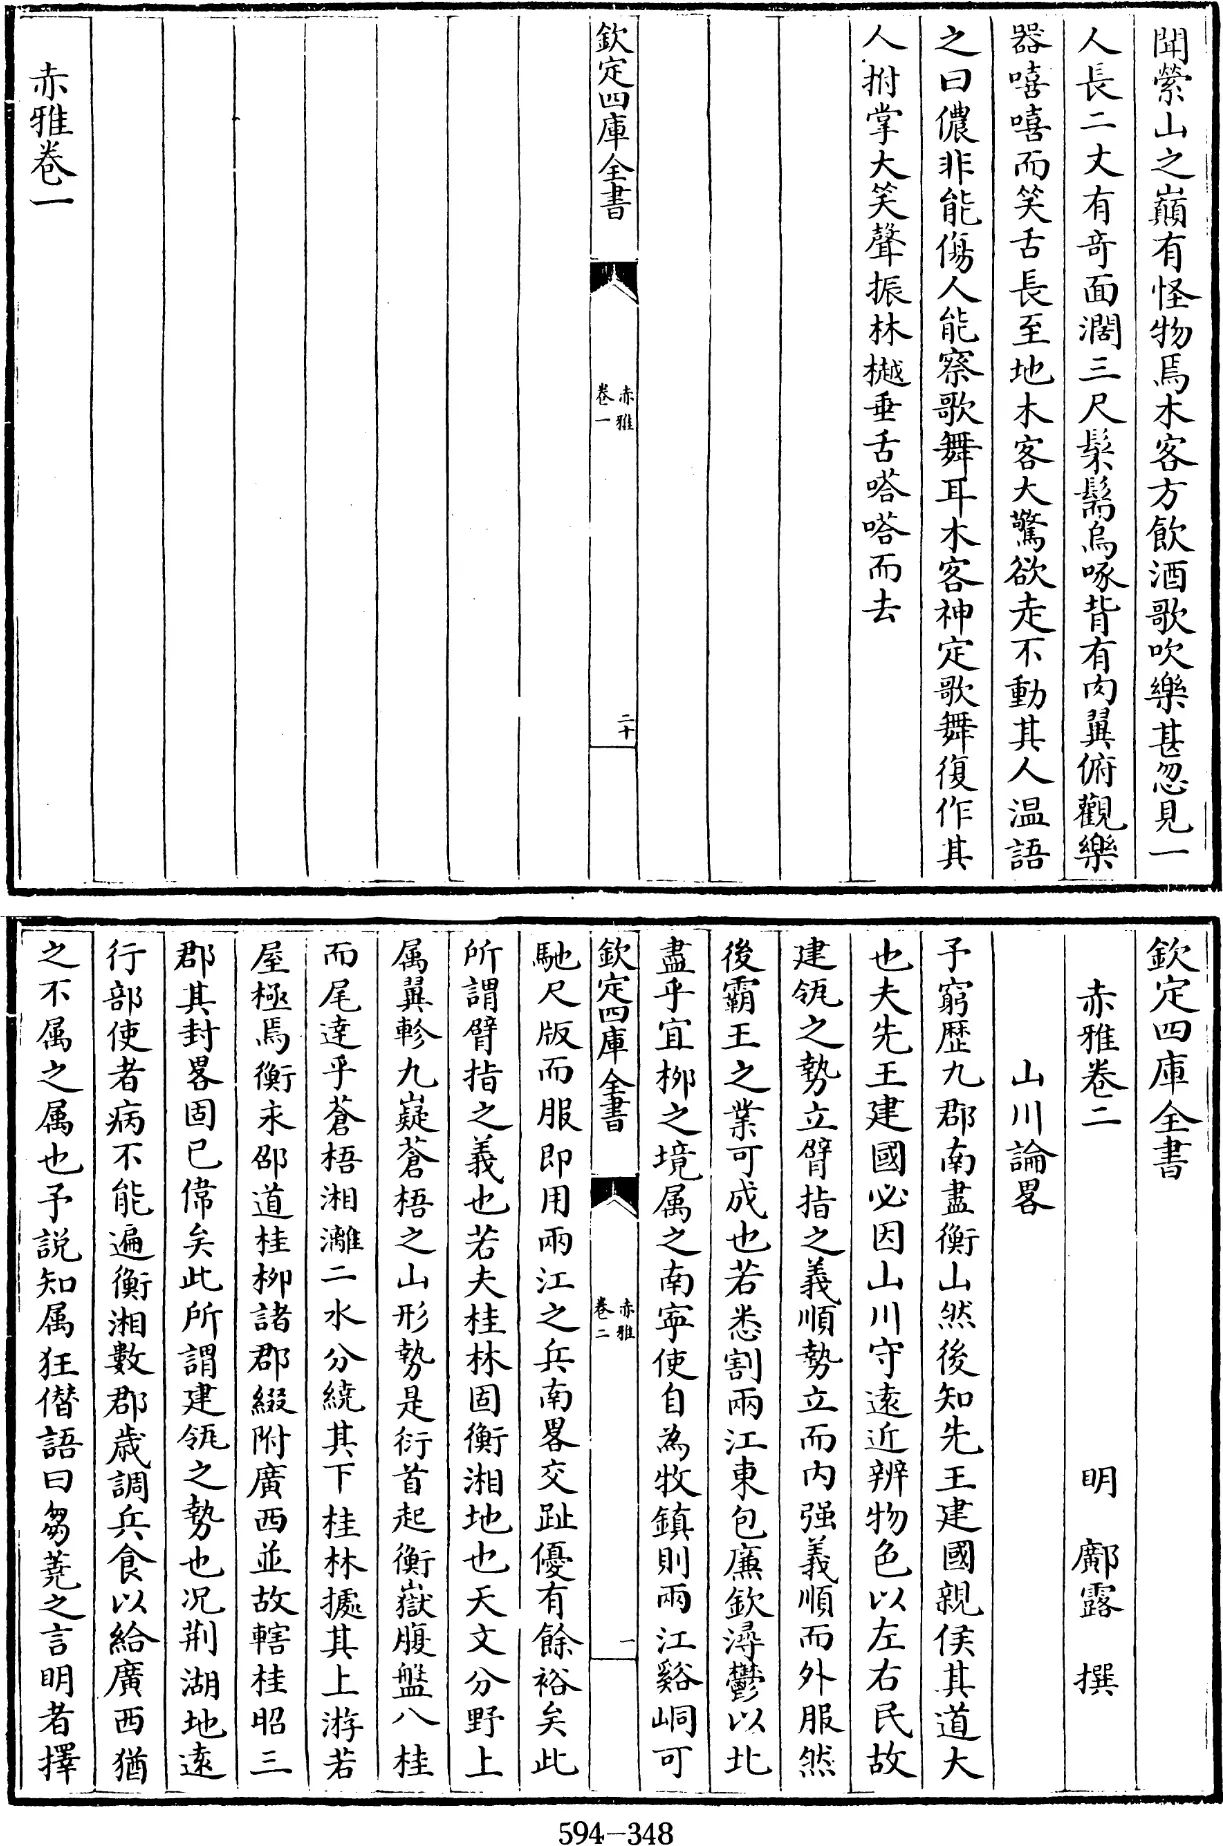 聞縈山之巔有怪物焉木客方飲酒歌吹樂甚忽見一
人長二丈有奇面濶三尺髤鬍鳥啄背有肉翼俯觀樂
器嘻嘻而笑舌長至地木客大驚欲走不動其人温語
之曰儂非能傷人能察歌舞耳木客神定歌舞復作其
人拊掌大笑聲振林樾垂舌嗒嗒而去
欽定四庫全書
赤雅
卷一
二十
赤雅卷一
欽定四庫全書
赤雅卷二
明 鄺露 撰
山川論畧
予窮歷九郡南盡衡山然後知先王建國親侯其道大
也夫先王建國必因山川守逺近辨物色以左右民故
建瓴之勢立臂指之義順勢立而内强義順而外服然
後霸王之業可成也若悉割兩江東包亷欽潯鬱以北
盡乎宜栁之境属之南寜使自為牧鎮則兩江谿峒可
欽定四庫全書
赤雅
卷二
一
馳尺版而服即用兩江之兵南畧交趾優有餘裕矣此
所謂臂指之義也若夫桂林固衡湘地也天文分野上
属翼軫九嶷蒼梧之山形勢是衍首起衡嶽腹盤八桂
而尾逹乎蒼梧湘灕二水分繞其下桂林據其上游若
屋極焉衡永邵道桂栁諸郡綴附廣西並故轄桂昭三
郡其封畧固已偉矣此所謂建瓴之勢也况荆湖地逺
行部使者病不能遍衡湘數郡歳調兵食以給廣西猶
之不属之属也予説知属狂僣語曰芻蕘之言明者擇
594-348